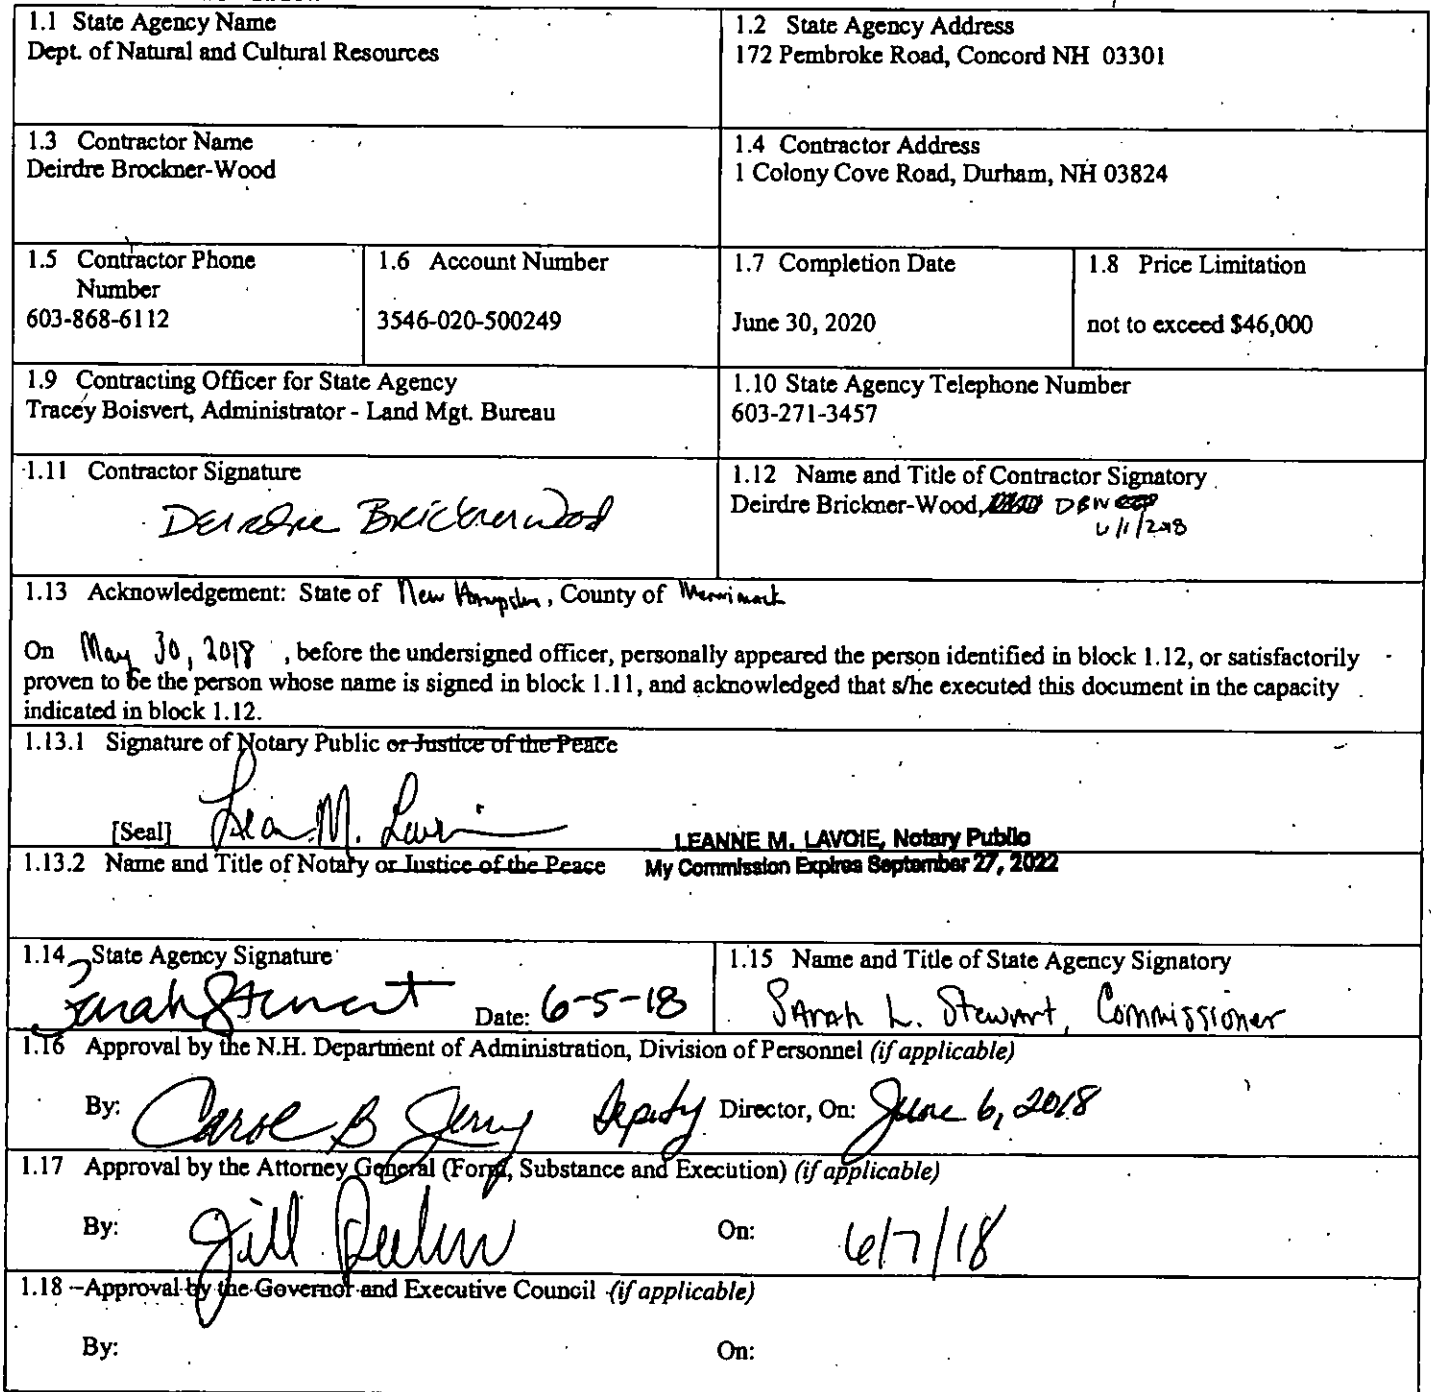 1.1 State Agency Name
Dept. of Natural and Cultural Resources
1.2 State Agency Address
172 Pembroke Road, Concord NH 03301
1.3 Contractor Name
Deirdre Brockner-Wood
1.4 Contractor Address
1 Colony Cove Road, Durham, NH 03824
1.5 Contractor Phone
Number
603-868-6112
1.6 Account Number
3546-020-500249
1.7 Completion Date
June 30, 2020
1.8 Price Limitation
not to exceed $46,000
1.9 Contracting Officer for State Agency
Tracey Boisvert, Administrator - Land Mgt. Bureau
1.10 State Agency Telephone Number
603-271-3457
1.11 Contractor Signature
Deirdre Bricknerwood
1.12 Name and Title of Contractor Signatory
Deirdre Brickner-Wood, DBW
6/1/2018
1.13 Acknowledgement: State of New Hampshire, County of Merrimack
On May 30, 2018, before the undersigned officer, personally appeared the person identified in block 1.12, or satisfactorily
proven to be the person whose name is signed in block 1.11, and acknowledged that s/he executed this document in the capacity
indicated in block 1.12.
1.13.1 Signature of Notary Public or Justice of the Peace
[Seal]
LEANNE M. LAVOIE, Notary Public
1.13.2 Name and Title of Notary or Justice of the Peace
My Commission Expires September 27, 2022
1.14 State Agency Signature
Sarah Stewart Date: 6-5-18
1.15 Name and Title of State Agency Signatory
Sarah L. Stewart, Commissioner
1.16 Approval by the N.H. Department of Administration, Division of Personnel (if applicable)
By: Carol B Jerry Deputy Director, On: June 6, 2018
1.17 Approval by the Attorney General (Form, Substance and Execution) (if applicable)
By: Jill On: 6/7/18
1.18 Approval by the Governor and Executive Council (if applicable)
By: On: